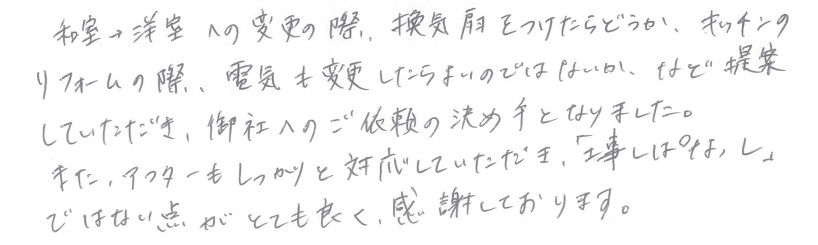 和室→洋室への変更の際、換気扇をつけたらどうか、キッチンの
リフォームの際、電気も変更したらよいのではないか、など提案
していただき、御社へのご依頼の決め手となりました。
また、アフターもしっかりと対応していただき、「工事しぱなし」
ではない点がとても良く、感謝しております。